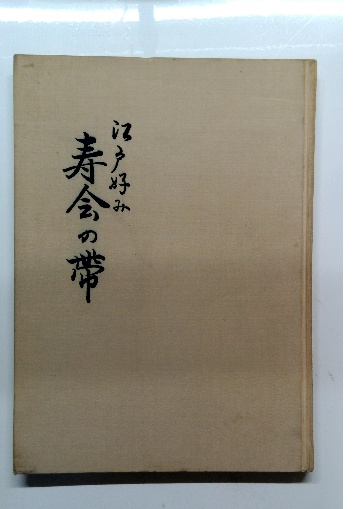 江戸好み
寿会の帯